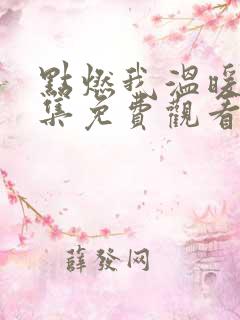 點燃我溫暖
集免費觀看
薛發网